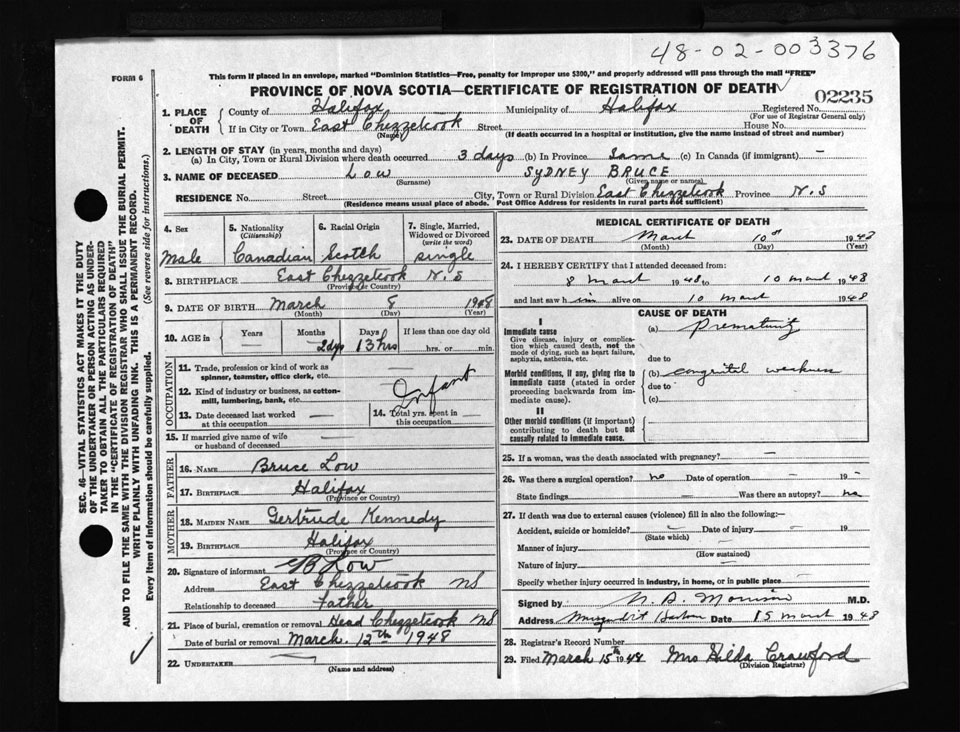 48-02-003376
FORM 6
This form if placed in an envelope, marked "Dominion Statistics—Free, penalty for improper use $300," and properly addressed will pass through the mail "FREE"
PROVINCE OF NOVA SCOTIA—CERTIFICATE OF REGISTRATION OF DEATH
02235
1. PLACE OF DEATH
County of Halifax Municipality of Halifax Registered No.
(For use of Registrar General only)
If in City or Town East Chezzetcook Street House No.
(Name) (If death occurred in a hospital or institution, give the name instead of street and number)
2. LENGTH OF STAY (in years, months and days)
(a) In City, Town or Rural Division where death occurred 3 days (b) In Province Same (c) In Canada (if immigrant) —
3. NAME OF DECEASED Low SYDNEY BRUCE
(Surname) (Given name or names)
RESIDENCE No. Street City, Town or Rural Division East Chezzetcook Province N.S
(Residence means usual place of abode. Post Office Address for residents in rural parts not sufficient)
4. Sex
Male
5. Nationality
(Citizenship)
Canadian
6. Racial Origin
Scotch
7. Single, Married, Widowed or Divorced
(write the word)
single
8. BIRTHPLACE East Chezzetcook N.S
(Province or Country)
9. DATE OF BIRTH March 8 1948
(Month) (Day) (Year)
10. AGE in
Years Months Days If less than one day old
2dys 13 hrs hrs. or min.
OCCUPATION
11. Trade, profession or kind of work as spinner, teamster, office clerk, etc. —
12. Kind of industry or business, as cotton-mill, lumbering, bank, etc.
Infant
13. Date deceased last worked at this occupation —
14. Total yrs. spent in this occupation —
15. If married give name of wife or husband of deceased —
FATHER
16. NAME Bruce Low
17. BIRTHPLACE Halifax
(Province or Country)
MOTHER
18. MAIDEN NAME Gertrude Kennedy
19. BIRTHPLACE Halifax
(Province or Country)
20. Signature of informant B Low
Address East Chezzetcook NS
Relationship to deceased Father
21. Place of burial, cremation or removal Head Chezzetcook NS
Date of burial or removal March. 12th 1948
22. UNDERTAKER —
(Name and address)
MEDICAL CERTIFICATE OF DEATH
23. DATE OF DEATH March 10th 1948
(Month) (Day) (Year)
24. I HEREBY CERTIFY that I attended deceased from:
8 March 1948 to 10 March 1948
and last saw him alive on 10 March 1948
CAUSE OF DEATH
I
Immediate cause
Give disease, injury or complication which caused death, not the mode of dying, such as heart failure, asphyxia, asthenia, etc.
(a) Prematurity
due to
Morbid conditions, if any, giving rise to immediate cause (stated in order proceeding backwards from immediate cause).
(b) congenital weakness
due to
(c)
II
Other morbid conditions (if important) contributing to death but not causally related to immediate cause.
25. If a woman, was the death associated with pregnancy? —
26. Was there a surgical operation? no Date of operation — 19 —
State findings — Was there an autopsy? no
27. If death was due to external causes (violence) fill in also the following:—
Accident, suicide or homicide? — Date of injury — 19
(State which)
Manner of injury —
(How sustained)
Nature of injury —
Specify whether injury occurred in industry, in home, or in public place —
Signed by N. B. Morrison M.D.
Address Musquodoboit Harbour Date 15 March 1948
28. Registrar's Record Number
29. Filed March 15th 1948 Mrs Hilda Crawford
(Division Registrar)
SEC. 46—VITAL STATISTICS ACT MAKES IT THE DUTY
OF THE UNDERTAKER OR PERSON ACTING AS UNDERTAKER TO OBTAIN ALL THE PARTICULARS REQUIRED
IN THE "CERTIFICATE OF REGISTRATION OF DEATH"
AND TO FILE THE SAME WITH THE DIVISION REGISTRAR WHO SHALL ISSUE THE BURIAL PERMIT.
WRITE PLAINLY WITH UNFADING INK. THIS IS A PERMANENT RECORD.
Every item of information should be carefully supplied. (See reverse side for instructions.)